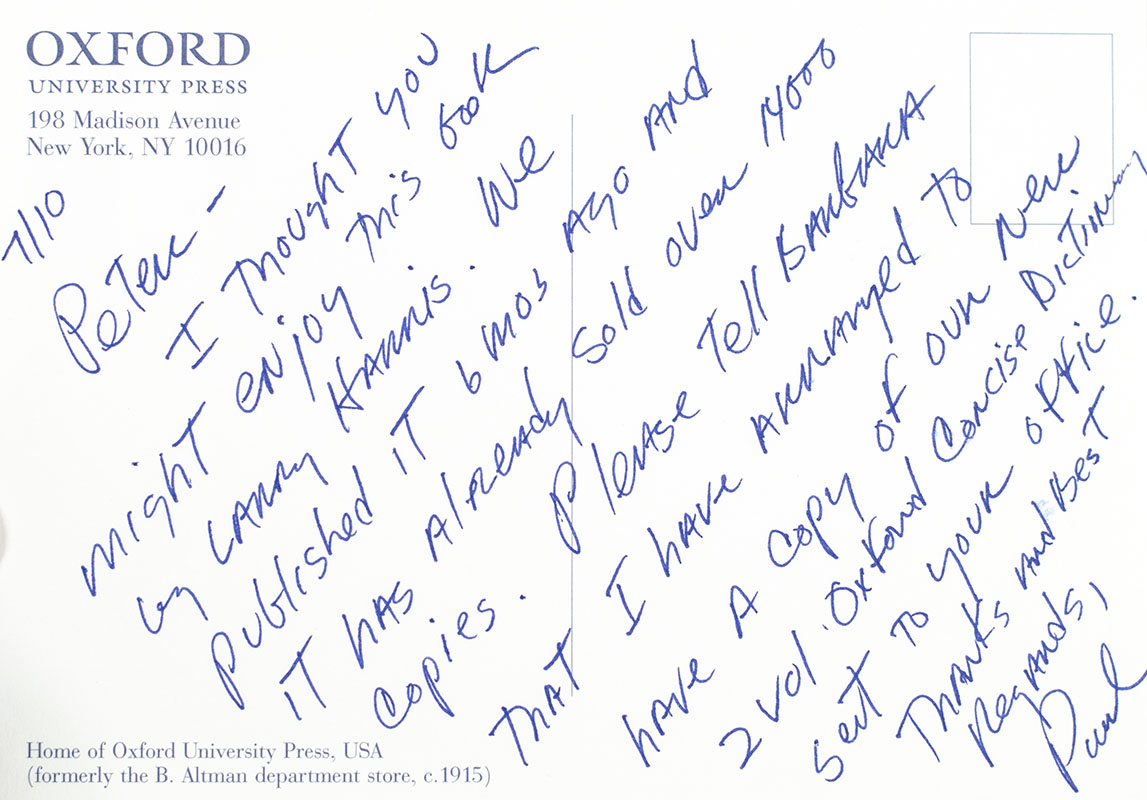 OXFORD
UNIVERSITY PRESS
198 Madison Avenue
New York, NY 10016
7/10
Peter –
I thought you
might enjoy this book
by Larry Harris. We
published it 6 mos ago and
it has already sold over 14000
copies. Please tell Barbara
that I have arranged to
have a copy of our new
2 vol. Oxford Concise Dictionary
sent to your office.
Thanks and Best
Regards,
Paul
Home of Oxford University Press, USA
(formerly the B. Altman department store, c.1915)